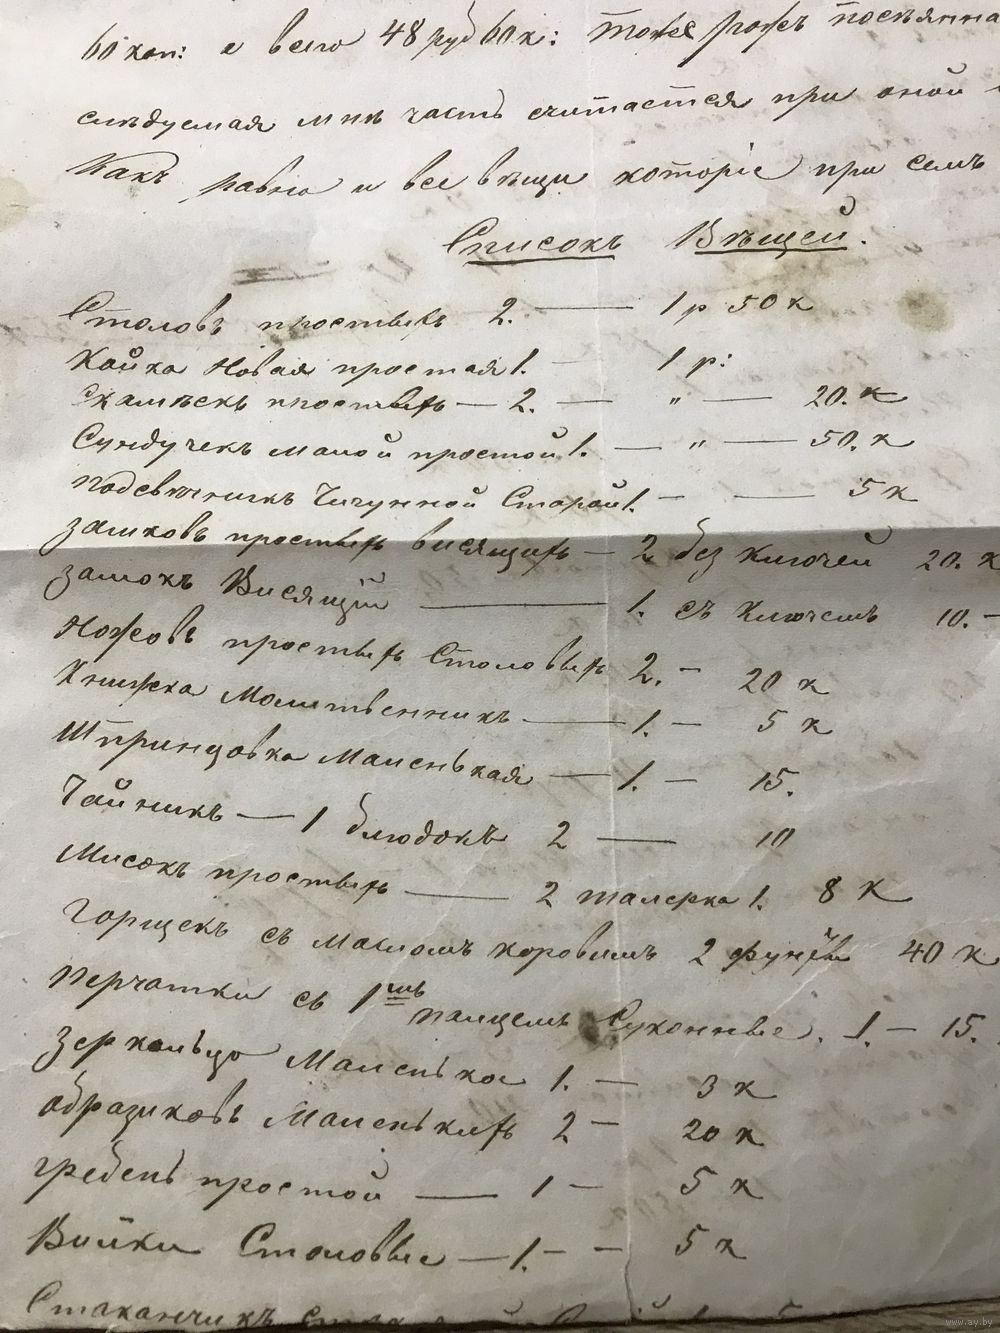 60 коп: а всего 48 руб 60 к: тоже рожь посѣянна
слѣдуемая мнѣ часть считается при оной
Какъ равно и все вѣщи которіе при семъ
Списокъ Вѣщей.
Столовъ простыхъ 2. — 1 р 50 к
Койка Новая простая 1. — 1 р:
Скамѣекъ простыхъ — 2. — " — 20. к
Сундучекъ малой простой 1. — " — 50. к
подсвѣчникъ Чигунной Старой 1. — — 5 к
замковъ простыхъ висящихъ — 2 без ключей 20. к
замокъ Висящій — 1. съ Ключемъ 10. —
Ножовъ простыхъ Столовыхъ 2. — 20 к
Книжка Молитвенникъ — 1. — 5 к
Шпринцовка Маленькая — 1. — 15.
Чайникъ — 1 блюдокъ 2 — 10
Мисокъ простыхъ — 2 талерка 1. 8 к
Горщекъ съ масломъ коровимъ 2 40 к
Перчатки съ 1мъ палцемъ Суконные. 1. — 15.
Зеркальцо Маленькое 1. — 3 к
образиковъ Маленькихъ 2 — 20 к
гребень простой — 1 — 5 к
Вилки Столовые — 1. — — 5 к
Стаканчикъ
www.ay.by